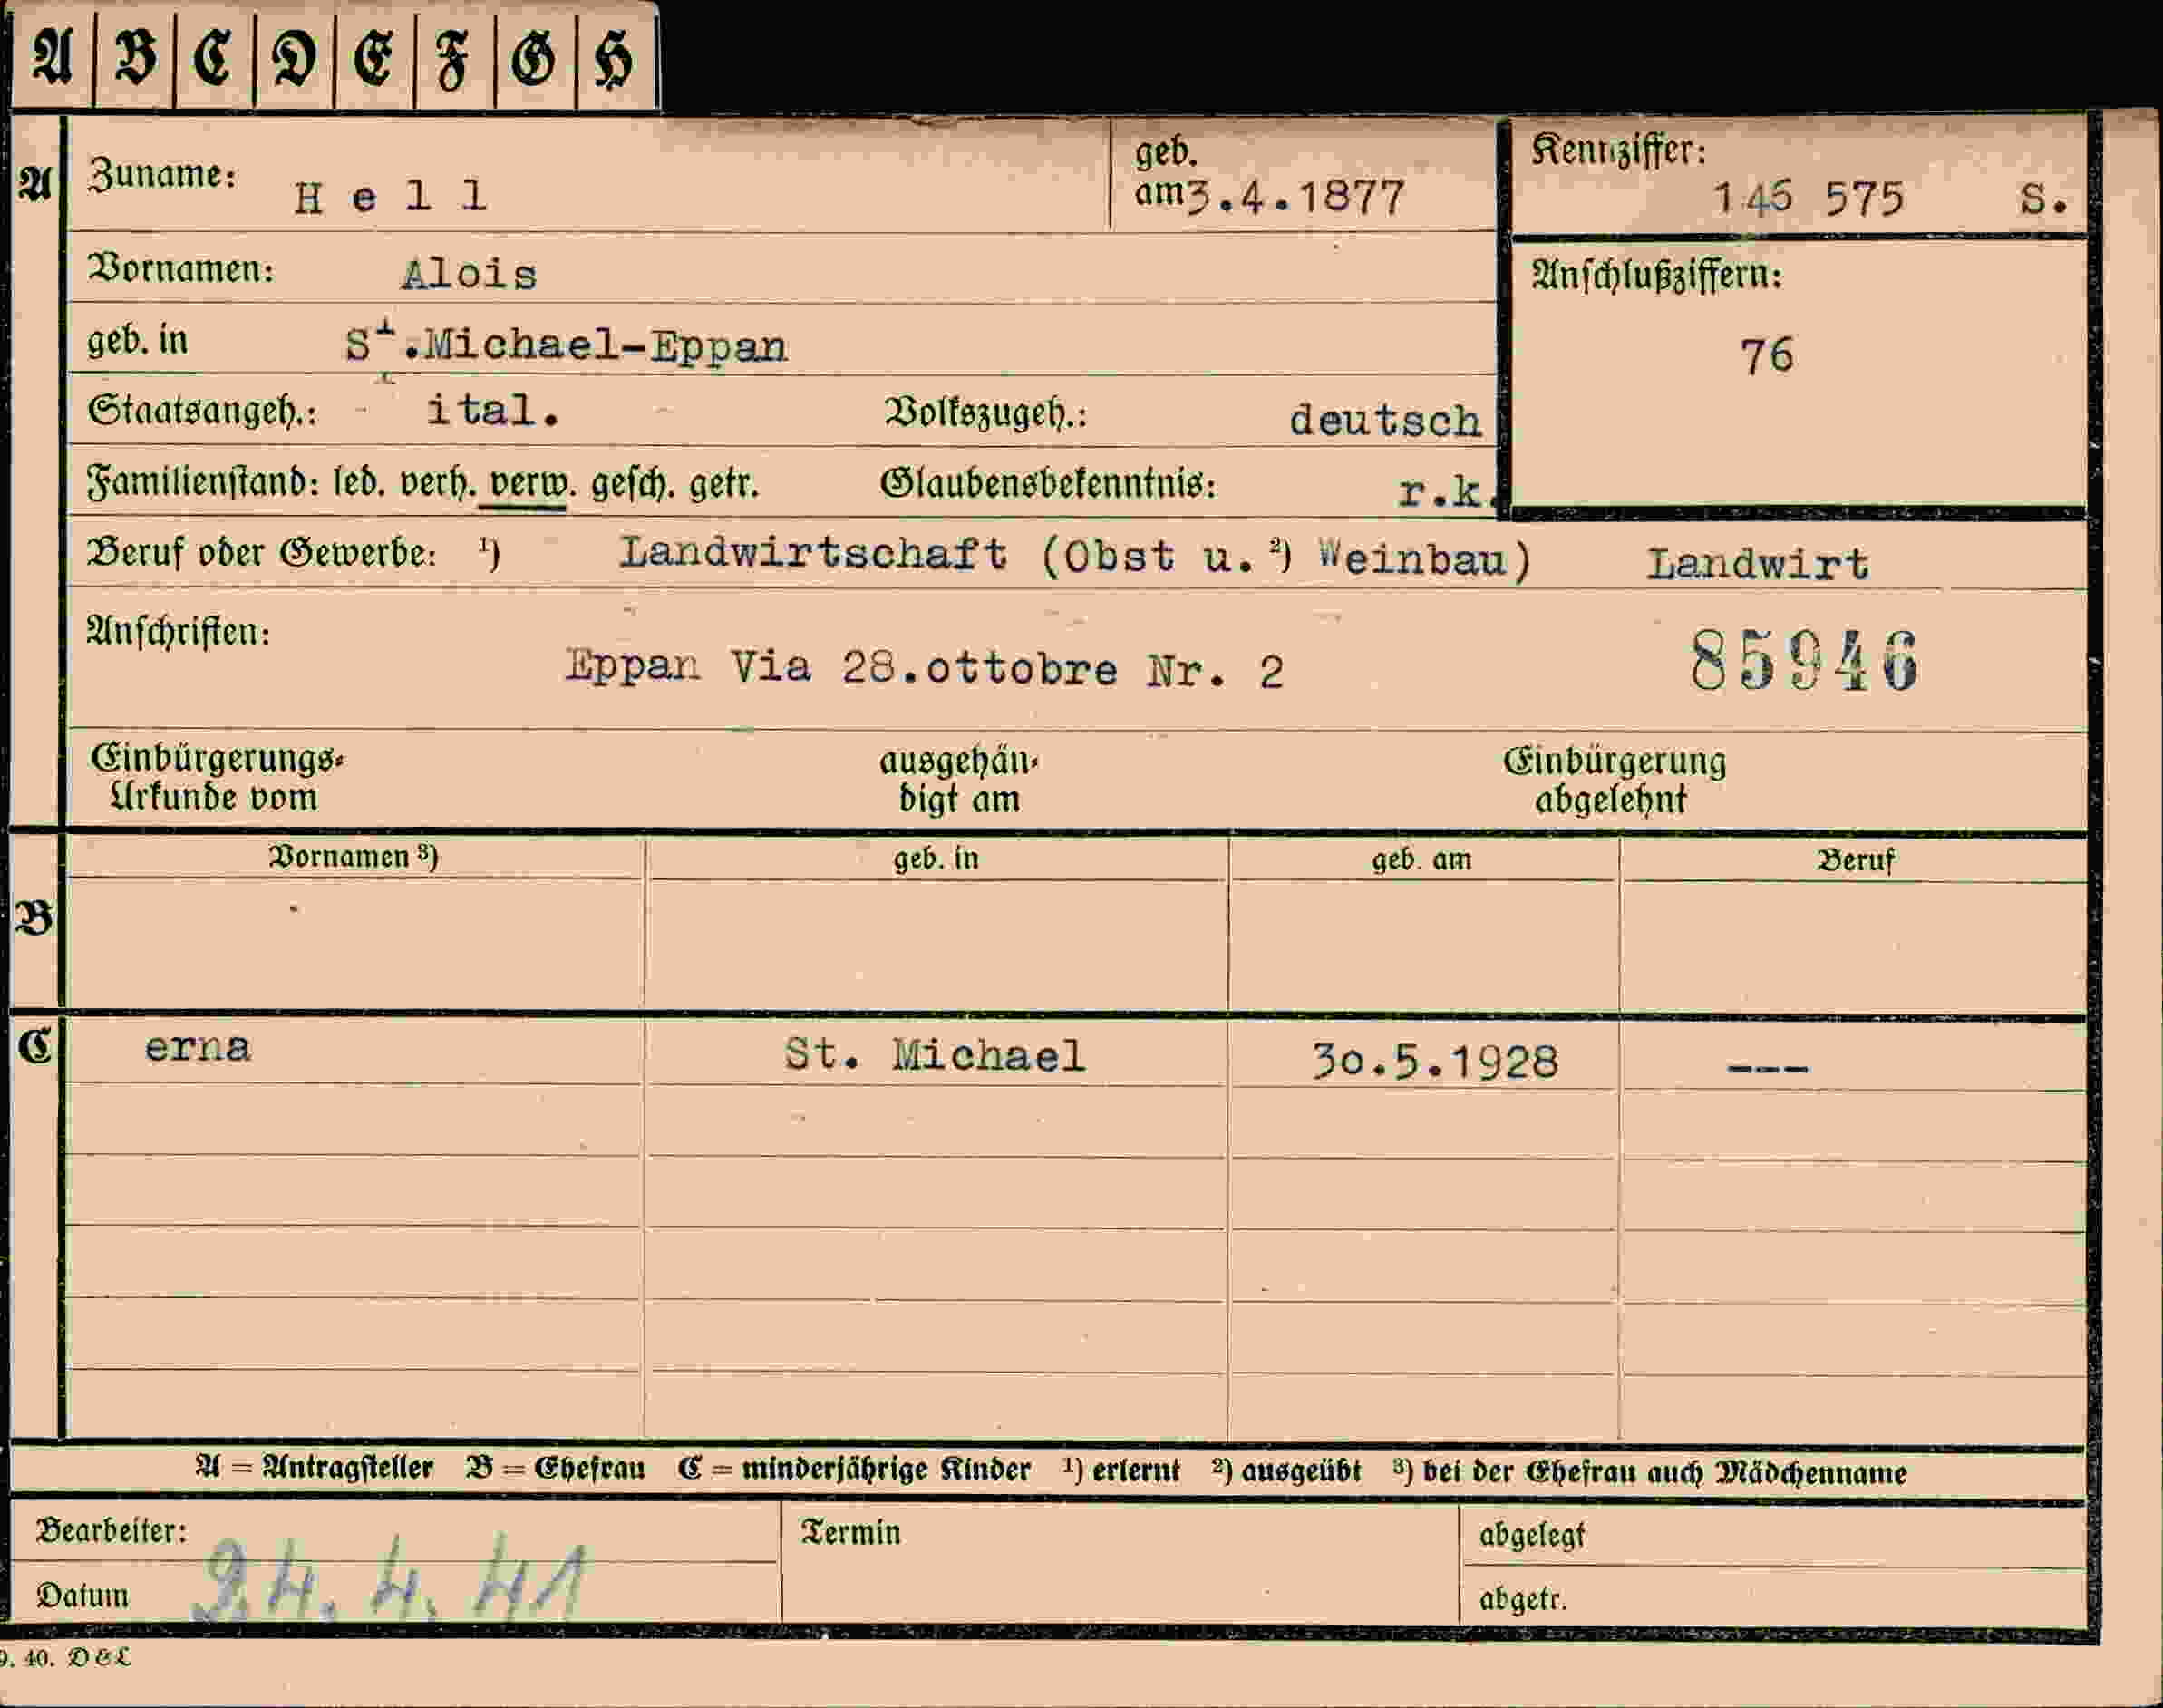 A B C D E F G H
A Zuname: Hell geb. am 3.4.1877 Kennziffer: 145 575 S.
Vornamen: Alois Anschlußziffern:
geb. in St.Michael-Eppan 76
Staatsangeh.: ital. Volkszugeh.: deutsch
Familienstand: led. verh. verw. gesch. getr. Glaubensbekenntnis: r.k.
Beruf oder Gewerbe: ¹) Landwirtschaft (Obst u. ²) Weinbau) Landwirt
Anschriften: Eppan Via 28.ottobre Nr. 2 85946
Einbürgerungs- ausgehän- Einbürgerung
Urkunde vom digt am abgelehnt
Vornamen ³) geb. in geb. am Beruf
B
C erna St. Michael 30.5.1928 ---
A = Antragsteller B = Ehefrau C = minderjährige Kinder ¹) erlernt ²) ausgeübt ³) bei der Ehefrau auch Mädchenname
Bearbeiter: Termin abgelegt
Datum 24.4.41 abgetr.
9. 40. D&L